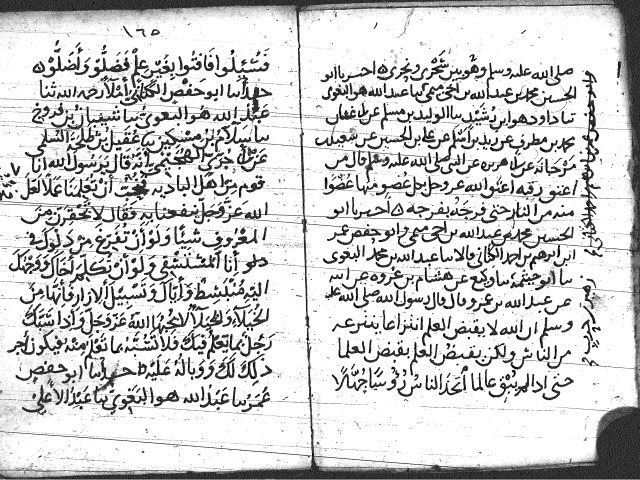 صلى الله عليه وسلم وهو بين سحري ونحري ه اخبرنا ابو
الحسين محمد بن عبد الله بن اخي ميمي نبا عبد الله هو البغوي
نبا داود هو ابن رشيد نبا الوليد بن مسلم عن ابي غسان
محمد بن مطرف عن زيد بن اسلم عن علي بن الحسين عن سعيد بن
مرجانة عن ابي هريرة عن النبي صلى الله عليه وسلم قال من
اعتق رقبة اعتق الله عز وجل بكل عضو منها عضوا
منه من النار حتى فرجه بفرجه ه اخبرنا ابو
الحسين محمد بن عبد الله بن اخي ميمي وابو حفص عمر
ابن ابرهيم بن احمد الكتاني قالا نبا عبد الله بن محمد البغوي
نبا ابو خيثمة نبا وكيع عن هشام بن عروة عن ابيه
عن عبد الله بن عمرو قال قال رسول الله صلى الله عليه
وسلم ان الله لا يقبض العلم انتزاعا ينتزعه
من الناس ولكن يقبض العلم بقبض العلما
حتى اذا لم يبق عالما اتخذ الناس رؤوسا جهالا
١٦٥
فسئلوا فافتوا بغير علم فضلوا واضلوا ه
حدثنا ابو حفص الكتاني املا رحمه الله نبا
عبد الله هو البغوي نبا شيبان بن فروخ
نبا سلام بن مسكين نبا عقيل بن طلحة السلمي
عن ابي جري الهجيمي انه قال يرسول الله انا
قوم من اهل البادية نحب ان تعلمنا عملا لعل
الله عز وجل ينفعنا به فقال لا تحقرن من
المعروف شيئا ولو ان تفرغ من دلوك في
اناء المستسقي ولو ان تكلم اخاك ووجهك
اليه منبسط واياك وتسبيل الازار فانها من
الخيلاء والخيلاء لا يحبها الله عز وجل واذا سبك
رجل بما يعلم فيك فلا تسبه بما تعلم منه فيكون اجر
ذلك لك ووباله عليه حدثنا ابو حفص
عمر نبا عبد الله هو البغوي نبا عبد الاعلى